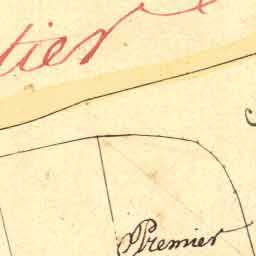 tier
Premier